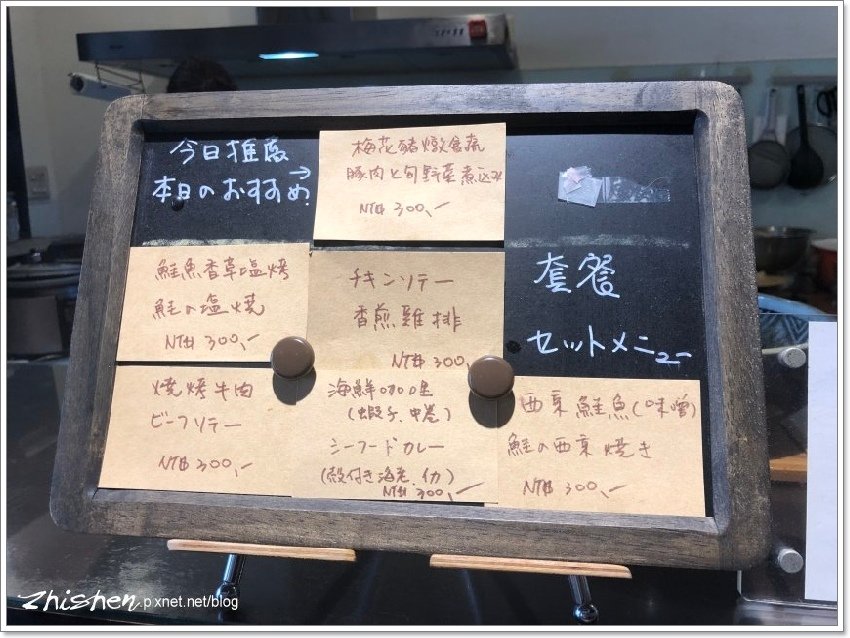 今日推廌→
本日のおすすめ!
梅花豬燉時蔬
豚肉と旬野菜煮込み
NT$ 300,-
鮭魚香草塩烤
鮭の塩焼
NT$ 300,-
チキンソテー
香煎雞排
NT$ 300,-
套餐
セットメニュー
燒烤牛肉
ビーフソテー
NT$ 300,-
海鮮咖哩
(蝦子.中卷)
シーフードカレー
(殻付き海老.イカ)
NT$ 300,-
西京鮭魚(味噌)
鮭の西京焼き
NT$ 300,-
zhishen.pixnet.net/blog